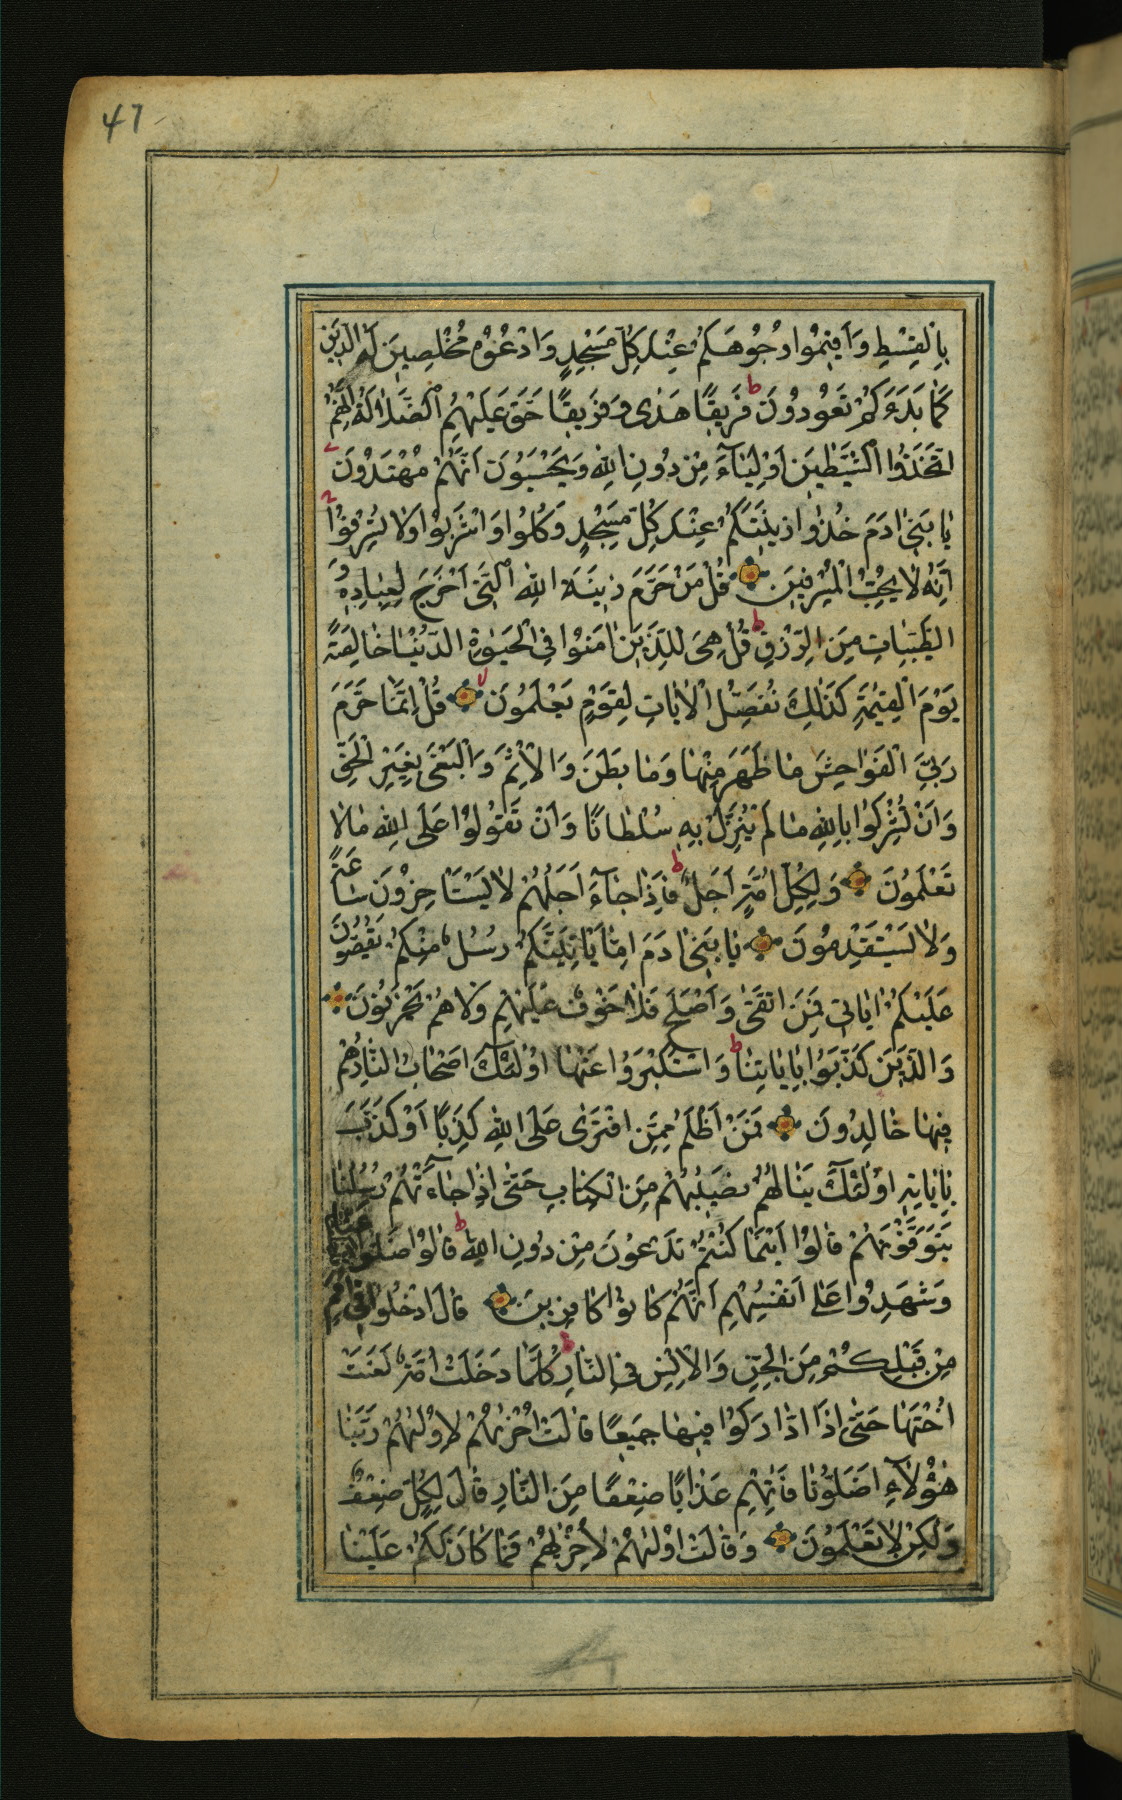 47
بِالْقِسْطِ وَاَقِيمُوا وُجُوهَكُمْ عِنْدَ كُلِّ مَسْجِدٍ وَادْعُوهُ مُخْلِصِينَ لَهُ الدِّينَ
كَمَا بَدَءَكُمْ تَعُودُونَ ط فَرِيقًا هَدٰى وَفَرِيقًا حَقَّ عَلَيْهِمُ الضَّلَالَةُ اِنَّهُمُ
اتَّخَذُوا الشَّيٰطِينَ اَوْلِيَاۤءَ مِنْ دُونِ اللّٰهِ وَيَحْسَبُونَ اَنَّهُمْ مُهْتَدُونَ
يَا بَنِى اٰدَمَ خُذُوا زِينَتَكُمْ عِنْدَ كُلِّ مَسْجِدٍ وَكُلُوا وَاشْرَبُوا وَلَا تُسْرِفُوا
اِنَّهُ لَا يُحِبُّ الْمُسْرِفِينَ قُلْ مَنْ حَرَّمَ زِينَةَ اللّٰهِ الَّتِى اَخْرَجَ لِعِبَادِهِ وَ
الطَّيِّبَاتِ مِنَ الرِّزْقِ ط قُلْ هِىَ لِلَّذِينَ اٰمَنُوا فِى الْحَيٰوةِ الدُّنْيَا خَالِصَةً
يَوْمَ الْقِيٰمَةِ كَذٰلِكَ نُفَصِّلُ الْاٰيَاتِ لِقَوْمٍ يَعْلَمُونَ قُلْ اِنَّمَا حَرَّمَ
رَبِّىَ الْفَوَاحِشَ مَا ظَهَرَ مِنْهَا وَمَا بَطَنَ وَالْاِثْمَ وَالْبَغْىَ بِغَيْرِ الْحَقِّ
وَاَنْ تُشْرِكُوا بِاللّٰهِ مَا لَمْ يُنَزِّلْ بِهِ سُلْطَانًا وَاَنْ تَقُولُوا عَلَى اللّٰهِ مَا لَا
تَعْلَمُونَ وَلِكُلِّ اُمَّةٍ اَجَلٌ ط فَاِذَا جَاۤءَ اَجَلُهُمْ لَا يَسْتَاْخِرُونَ سَاعَةً
وَلَا يَسْتَقْدِمُونَ يَا بَنِى اٰدَمَ اِمَّا يَاْتِيَنَّكُمْ رُسُلٌ مِنْكُمْ يَقُصُّونَ
عَلَيْكُمْ اٰيَاتِى فَمَنِ اتَّقٰى وَاَصْلَحَ فَلَا خَوْفٌ عَلَيْهِمْ وَلَا هُمْ يَحْزَنُونَ
وَالَّذِينَ كَذَّبُوا بِاٰيَاتِنَا ط وَاسْتَكْبَرُوا عَنْهَا اُولٰۤئِكَ اَصْحَابُ النَّارِ هُمْ
فِيهَا خَالِدُونَ فَمَنْ اَظْلَمُ مِمَّنِ افْتَرٰى عَلَى اللّٰهِ كَذِبًا اَوْ كَذَّبَ
بِاٰيَاتِهِ اُولٰۤئِكَ يَنَالُهُمْ نَصِيبُهُمْ مِنَ الْكِتَابِ حَتّٰى اِذَا جَاۤءَتْهُمْ رُسُلُنَا
يَتَوَفَّوْنَهُمْ قَالُوا اَيْنَمَا كُنْتُمْ تَدْعُونَ مِنْ دُونِ اللّٰهِ ط قَالُوا ضَلُّوا عَنَّا
وَشَهِدُوا عَلٰى اَنْفُسِهِمْ اَنَّهُمْ كَانُوا كَافِرِينَ قَالَ ادْخُلُوا فِى اُمَمٍ
مِنْ قَبْلِكُمْ مِنَ الْجِنِّ وَالْاِنْسِ فِى النَّارِ ط كُلَّمَا دَخَلَتْ اُمَّةٌ لَعَنَتْ
اُخْتَهَا حَتّٰى اِذَا ادَّارَكُوا فِيهَا جَمِيعًا قَالَتْ اُخْرٰيهُمْ لِاُولٰيهُمْ رَبَّنَا
هٰۤؤُلَاۤءِ اَضَلُّونَا فَاٰتِهِمْ عَذَابًا ضِعْفًا مِنَ النَّارِ قَالَ لِكُلٍّ ضِعْفٌ
وَلٰكِنْ لَا تَعْلَمُونَ وَقَالَتْ اُولٰيهُمْ لِاُخْرٰيهُمْ فَمَا كَانَ لَكُمْ عَلَيْنَا